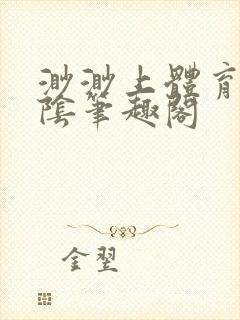 渺渺上體育
陰筆趣閣
金翌